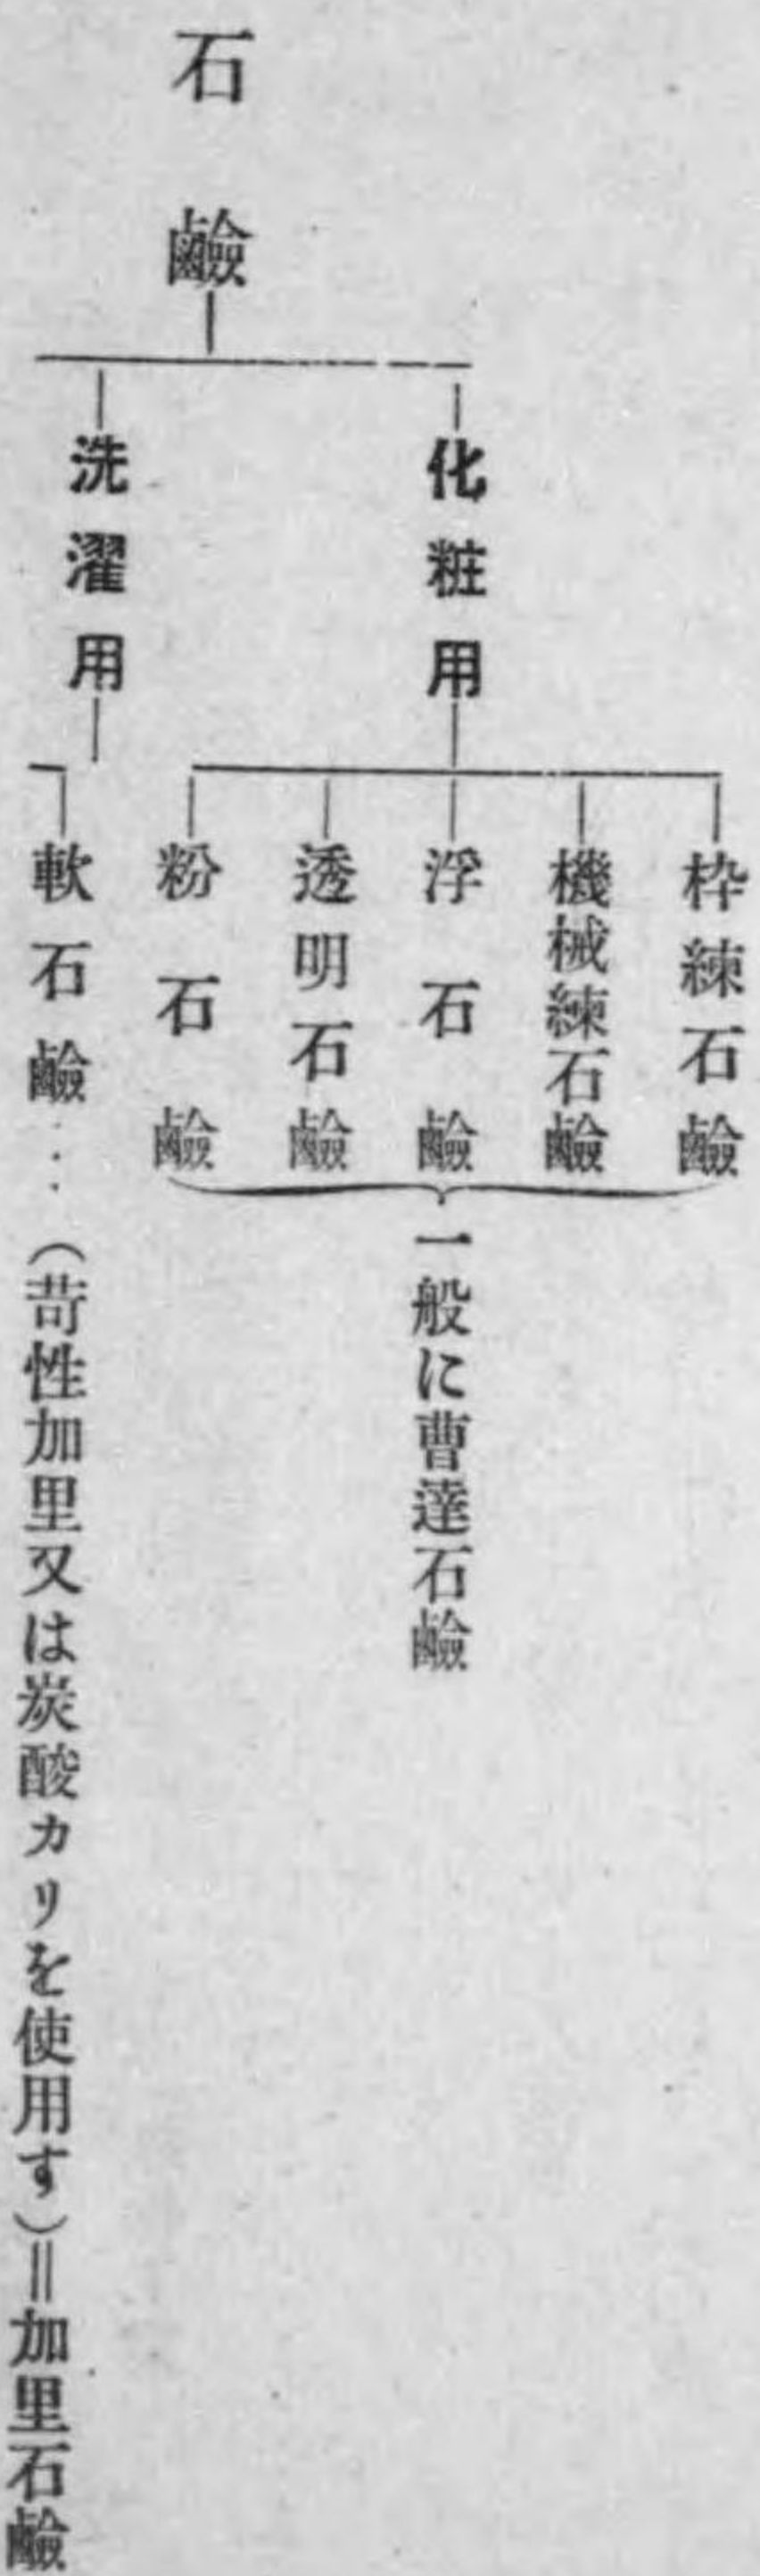 石鹼
化粧用
枠練石鹼
機械練石鹼
浮石鹼
透明石鹼
粉石鹼
一般に曹達石鹼
洗濯用
軟石鹼…(苛性加里又は炭酸カリを使用す)=加里石鹼